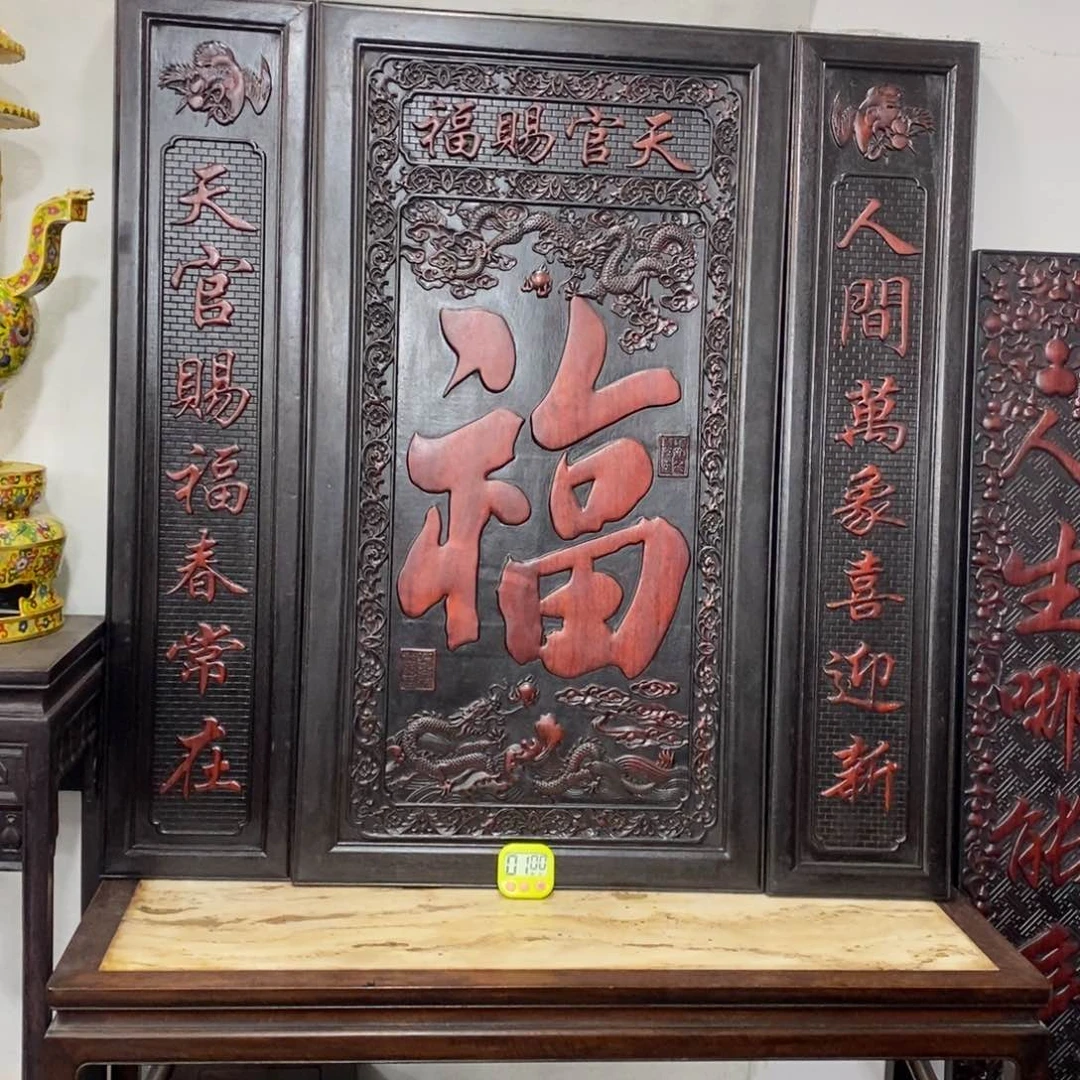 天官賜福
福
天官賜福春常在
人間萬象喜迎新
人生哪能
0100